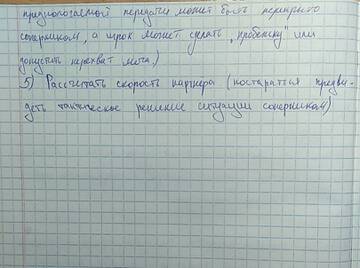 предполагаемой передачи может быть перекрыто
соперником, а игрок может сделать „пробежку" или
допустить перехват мяча.)
5) Рассчитать скорость партнера (постараться предви-
деть тактическое решение ситуации соперником)